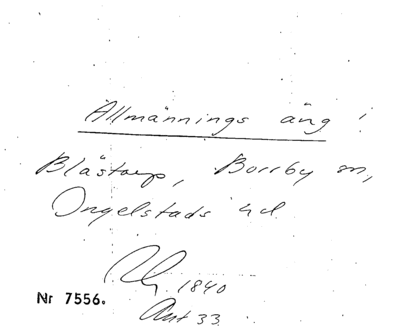 Allmännings äng i
Blåstorp, Borrby sn,
Ingelstads hd
1840
Nr 7556.
Akt 33